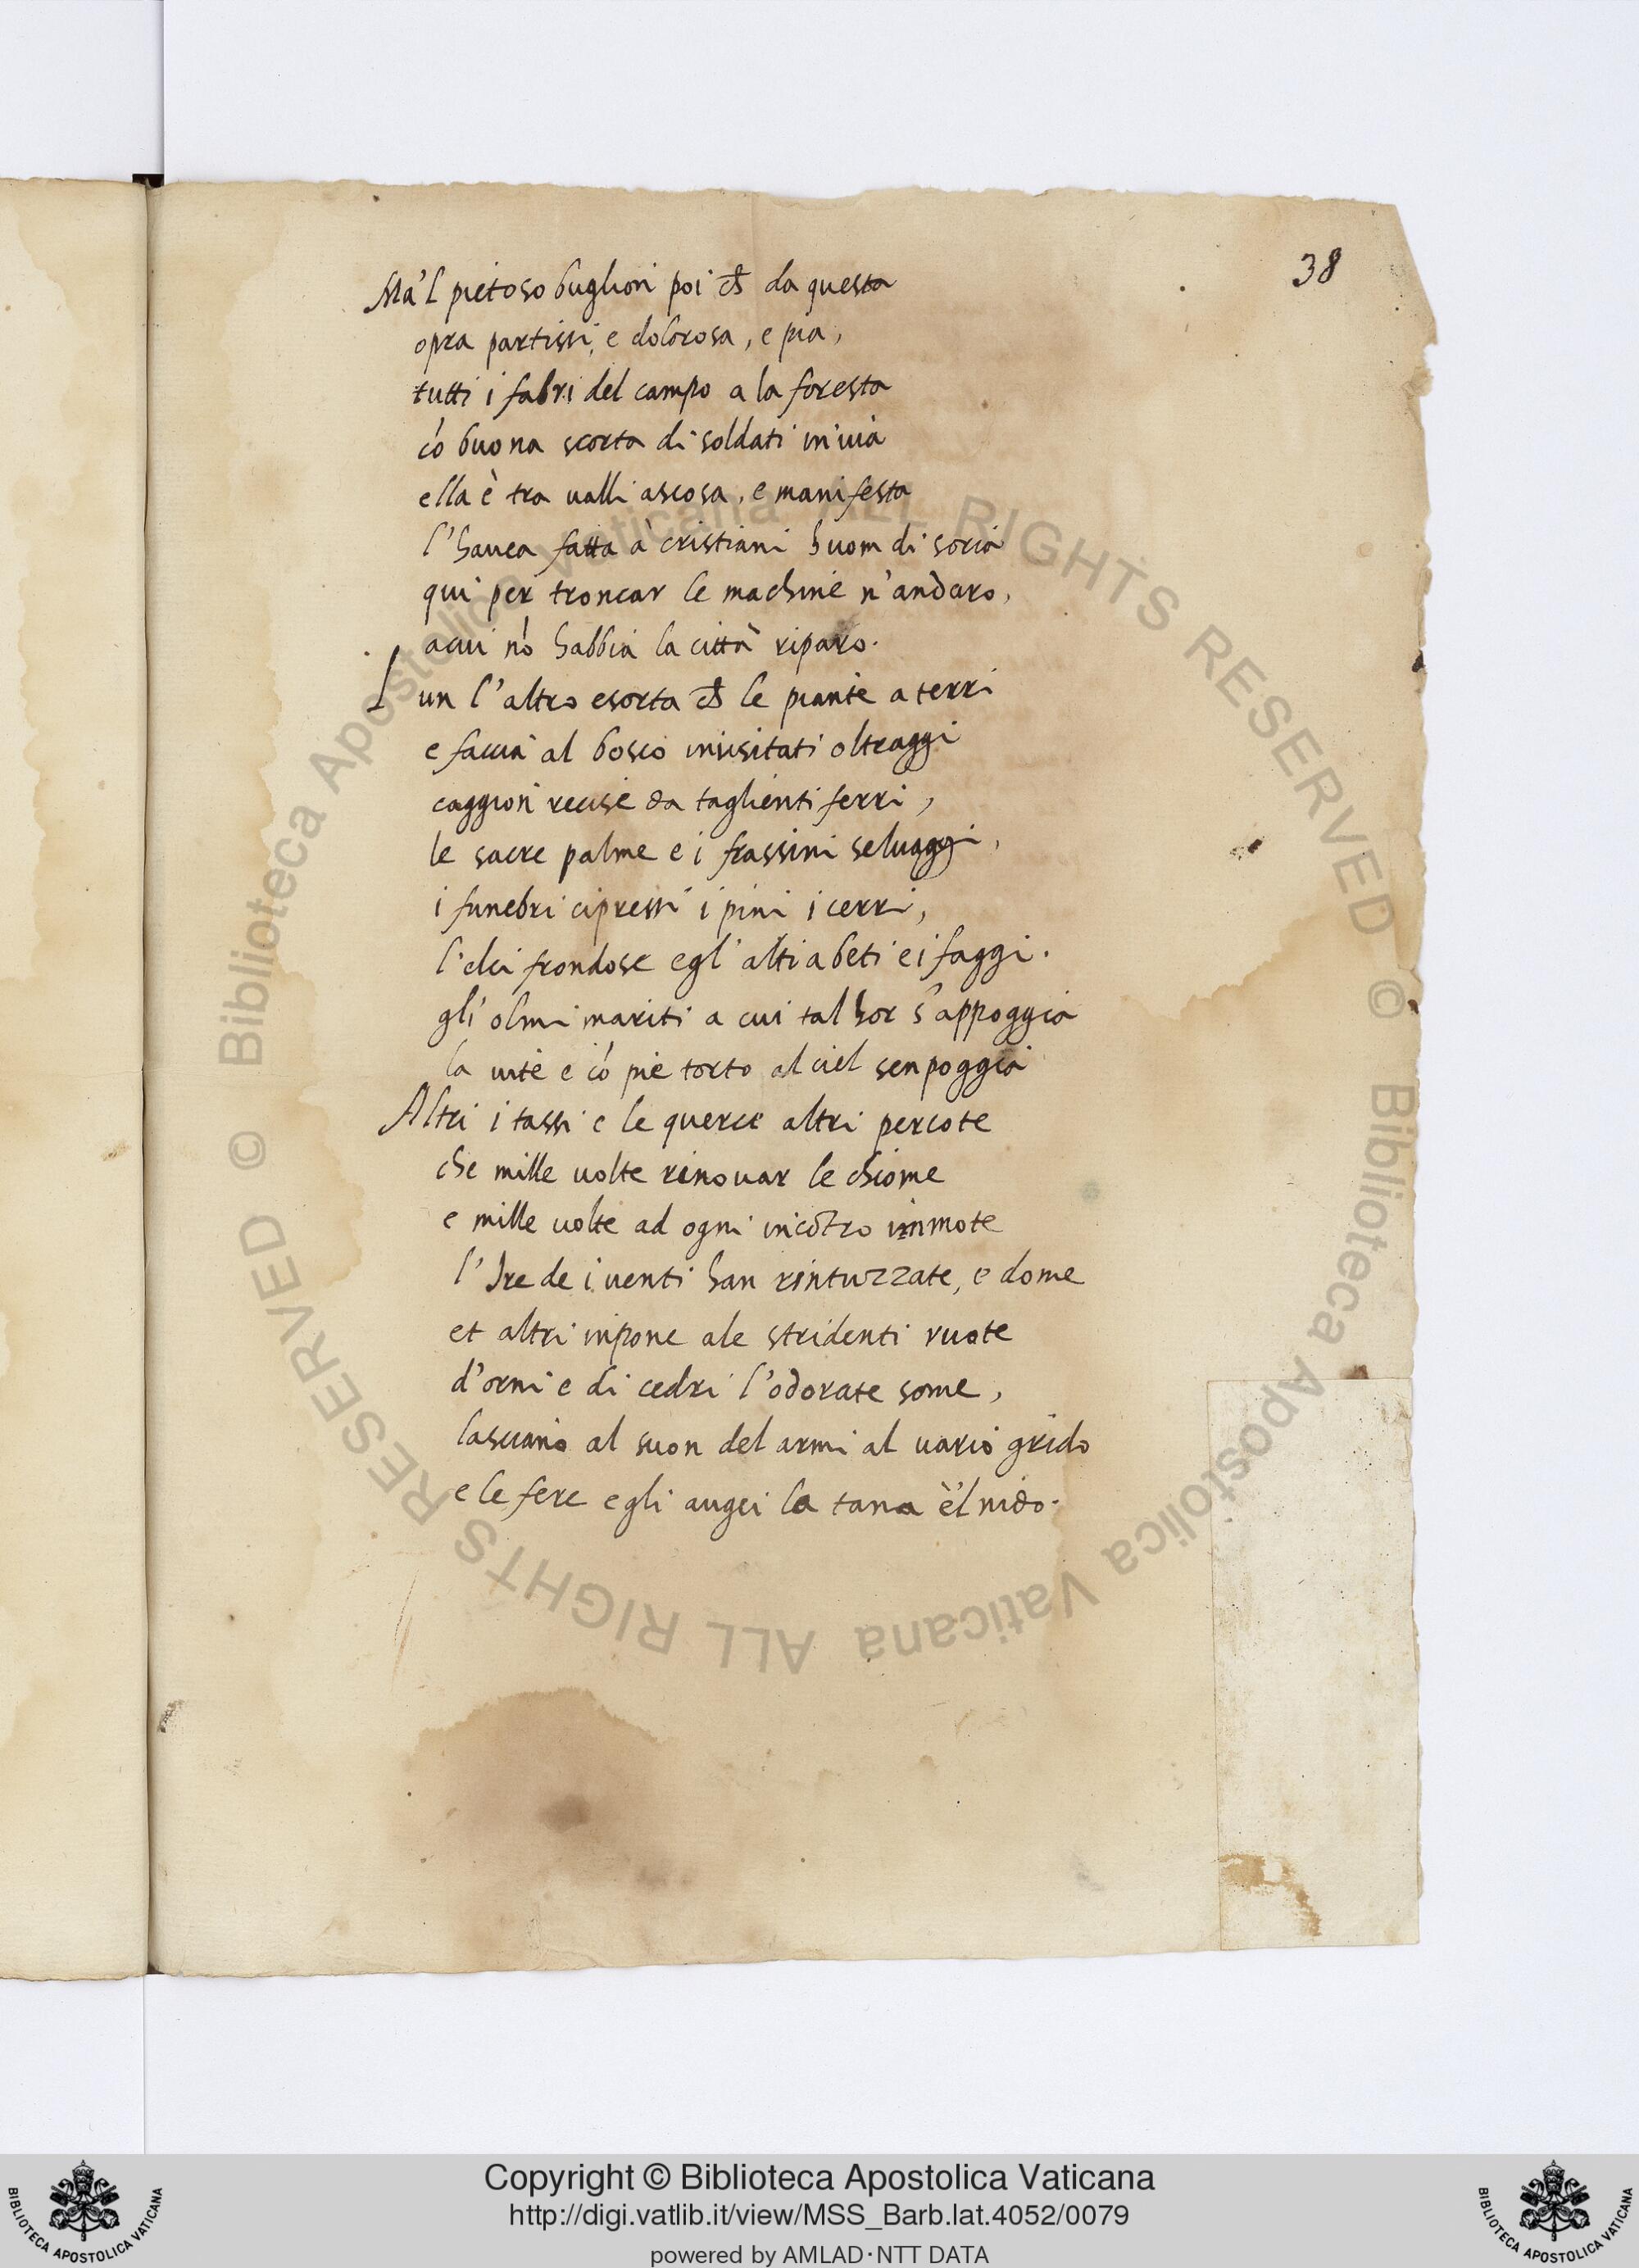 38
Ma'l pietoso buglion poi ch̄ da questa
opra partissi, e dolorosa, e pia,
tutti i fabri del campo a la foresta
cō buona scorta di soldati inuia
ella è tra ualli ascosa, e manifesta
l'hauea fatta à cristiani huom di soria
qui per troncar le machine n'andaro,
acui nō habbia la città riparo.
L un l'altro esorta ch̄ le piante aterri
e faccia al bosco inusitati oltraggi
caggion recise da taglienti ferri,
le sacre palme e i frassini seluaggi,
i funebri cipressi i pini i cerri,
l'elci frondose egl'alti abeti e i faggi.
gli olmi mariti a cui tal hor s'appoggia
la uite e cō pie torto al ciel senpoggia
Altri i tassi e le querce altri percote
che mille uolte rinouar le chiome
e mille uolte ad ogni incōtro inmote
l'Ire de i uenti han rintuzzate, e dome
et altri inpone ale stridenti ruote
d'orni e di cedri l'odorate some,
lasciano al suon del armi al uario grido
e le fere egli augei la tana è'l nido.
© Biblioteca Apostolica Vaticana ALL RIGHTS RESERVED © Biblioteca Apostolica Vaticana ALL RIGHTS RESERVED
Copyright © Biblioteca Apostolica Vaticana
http://digi.vatlib.it/view/MSS_Barb.lat.4052/0079
powered by AMLAD·NTT DATA
BIBLIOTECA APOSTOLICA VATICANA
BIBLIOTECA APOSTOLICA VATICANA